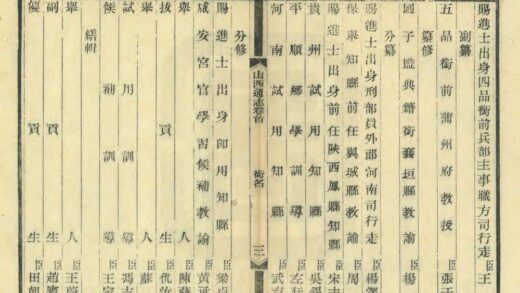 賜進士出身四品銜前兵部主事職方司行走臣王
副纂
五品銜前蒲州府教授臣張于
纂修
國子監典籍銜襄垣縣教諭臣楊
分纂
賜進士出身刑部員外郎河南司行走臣楊
保舉知縣前任翼城縣教諭臣周
賜進士出身前任陝西鳳縣知縣臣宋志
貴州試用知縣臣吳
平順鄉學訓導臣左
河南試用知縣臣武
山西通志卷首 銜名 三
分修
賜進士出身即用知縣臣梁
咸安宮官學習候補教諭臣黃
舉人臣陳
拔貢生臣仇汝
舉人臣蘇
試用訓導臣馮志
候補訓導臣王
繕輯
舉人臣王
副貢生臣趙
優貢生臣田朝